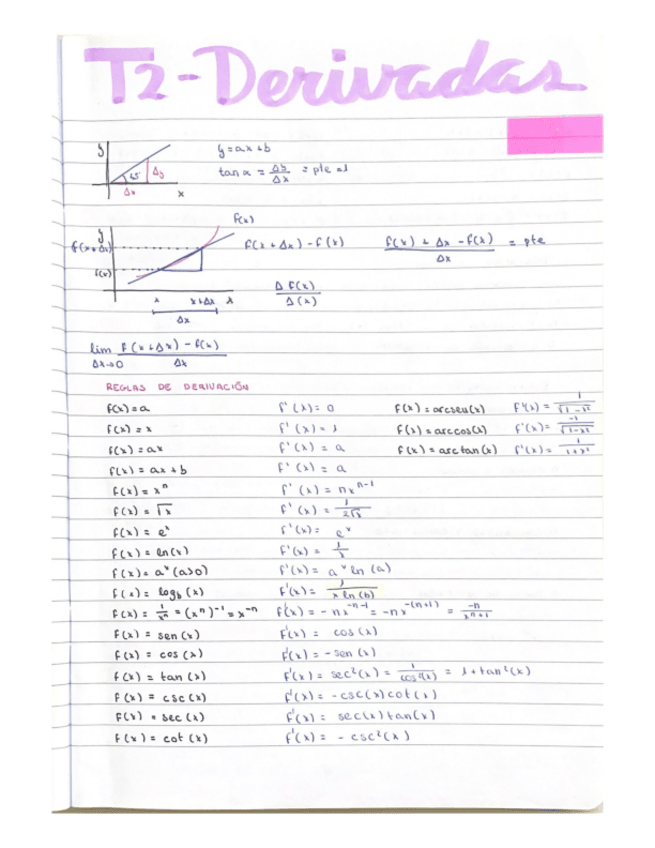 T2-Derivadas
y = ax + b
y
45
Δy
tan α = Δy/Δx = pte
Δx
x
f(x)
y
f(x+Δx)
f(x + Δx) - f(x)
f(x) + Δx - f(x) / Δx = pte
f(x)
Δ f(x) / Δ (x)
x x+Δx x
Δx
lim Δx→0 f(x+Δx) - f(x) / Δx
REGLAS DE DERIVACIÓN
f(x) = a f'(x) = 0 f(x) = arcsen(x) f'(x) = 1/√(1-x²)
f(x) = x f'(x) = 1 f(x) = arccos(x) f'(x) = -1/√(1-x²)
f(x) = ax f'(x) = a f(x) = arctan(x) f'(x) = 1/(1+x²)
f(x) = ax + b f'(x) = a
f(x) = xⁿ f'(x) = nxⁿ⁻¹
f(x) = √x f'(x) = 1/(2√x)
f(x) = eˣ f'(x) = eˣ
f(x) = ln(x) f'(x) = 1/x
f(x) = aˣ (a>0) f'(x) = aˣ ln (a)
f(x) = log_b (x) f'(x) = 1/(x ln(b))
f(x) = 1/xⁿ = (xⁿ)⁻¹ = x⁻ⁿ f'(x) = -nx⁻ⁿ⁻¹ = -nx⁻⁽ⁿ⁺¹⁾ = -n/xⁿ⁺¹
f(x) = sen(x) f'(x) = cos(x)
f(x) = cos(x) f'(x) = -sen(x)
f(x) = tan(x) f'(x) = sec²(x) = 1/cos²(x) = 1+tan²(x)
f(x) = csc(x) f'(x) = -csc(x)cot(x)
f(x) = sec(x) f'(x) = sec(x)tan(x)
f(x) = cot(x) f'(x) = -csc²(x)